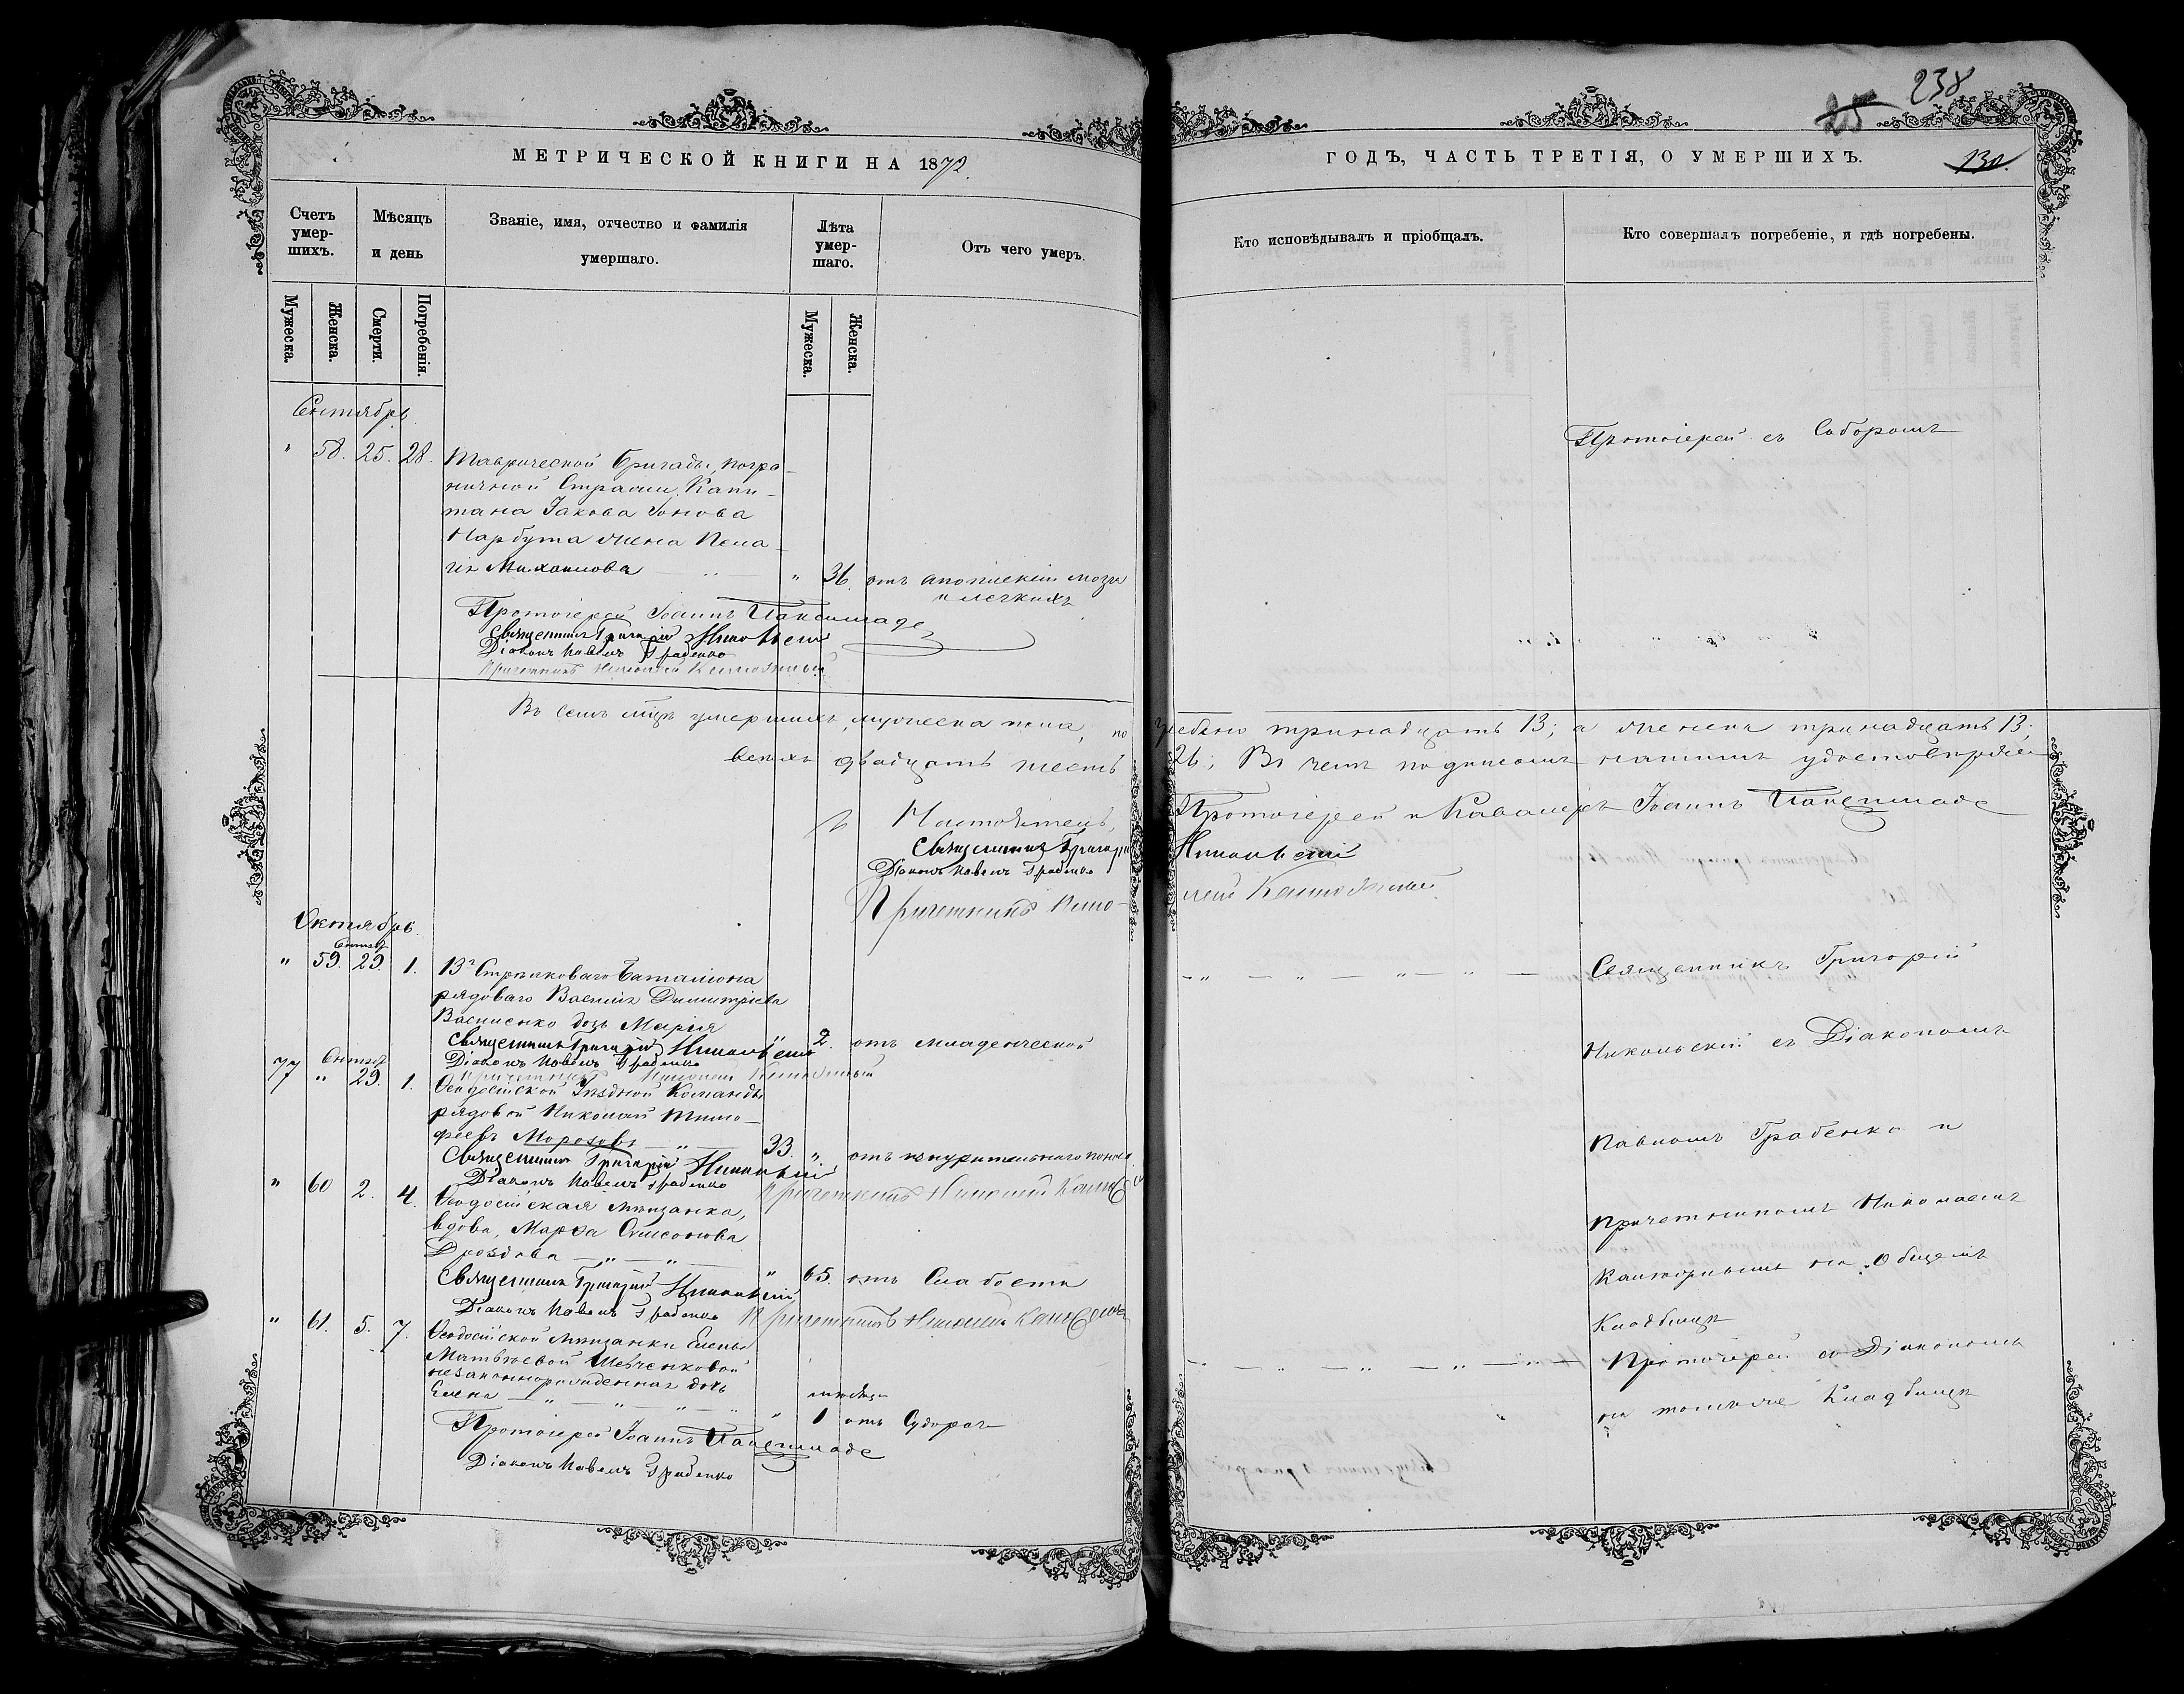 238
25
230.
МЕТРИЧЕСКОЙ КНИГИ НА 1872.
ГОДЪ, ЧАСТЬ ТРЕТІЯ, О УМЕРШИХЪ.
Счетъ умер-шихъ.
Мѣсяцъ и день
Званіе, имя, отчество и фамилія умершаго.
Лѣта умер-шаго.
Отъ чего умеръ.
Кто исповѣдывалъ и пріобщалъ.
Кто совершалъ погребеніе, и гдѣ погребены.
Мужеска.
Женска.
Смерти.
Погребенія.
Мужеска.
Женска.
Сентябрь
" 58. 25. 28. Таврической бригады, погра-
ничной Стражи, Капи-
тана Іакова Іонова
Нарбута жена Пела-
гія Михаилова " 36. отъ апоплексіи мозга
и легкихъ
Протоіерей съ Соборомъ
Протоіерей Іоаннъ
Священникъ Григорій Никольскій
Діаконъ Павелъ Грабенко
Причетникъ Николай
Въ семъ мцѣ умершихъ, мужеска пола, по
гребено тринадцать 13; а женска тринадцать 13;
всѣхъ двадцать шесть
26; Въ чемъ подписомъ нашимъ удостовѣряемъ
Настоятель,
Протоіерей и Кавалеръ Іоаннъ
Священникъ Григорій Никольскій
Діаконъ Павелъ Грабенко
Причетникъ Нико-
лай
Октябрь
Сентяб
" 59. 29. 1. 13го Стрѣлковаго баталіона
рядоваго Василія Димитріева
Василенко дочь Марія " 2. отъ младенческой
Священникъ Григорій Никольскій
Діаконъ Павелъ Грабенко
Причетникъ Николай
Священникъ Григорій
Никольскій съ Діакономъ
Павломъ Грабенко и
Причетникомъ Николаемъ
на Общемъ
Кладбищѣ
Сентяб
77 " 29. 1. Ѳеодосійской Уѣздной Команды
рядовой Николай Тимо-
феевъ Морозовъ 33. " отъ изнурительнаго поноса
Священникъ Григорій Никольскій
Діаконъ Павелъ Грабенко Причетникъ Николай
" 60 2. 4. Ѳеодосійская мѣщанка,
вдова, Марѳа Симеонова
Дроздова " 65. отъ Слабости
Священникъ Григорій Никольскій
Діаконъ Павелъ Грабенко Причетникъ Николай
" 61. 5. 7. Ѳеодосійской мѣщанки Елены
Матвѣевой Шевченковой
незаконнорожденная дочь
Елена " 1 отъ Судорог
Протоіерей съ Діакономъ
на томъ же Кладбищѣ
Протоіерей Іоаннъ
Діаконъ Павелъ Грабенко